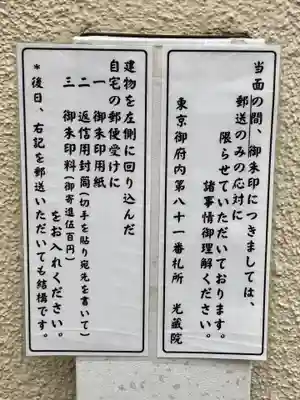 当面の間、御朱印につきましては、
郵送のみの応対に
限らせていただいております。
諸事情御理解ください。
東京御府内第八十一番札所 光蔵院
建物を左側に回り込んだ
自宅の郵便受けに
一 御朱印用紙
二 返信用封筒(切手を貼り宛先を書いて)
三 御朱印料(御寄進伍百円)
をお入れください。
*後日、右記を郵送いただいても結構です。